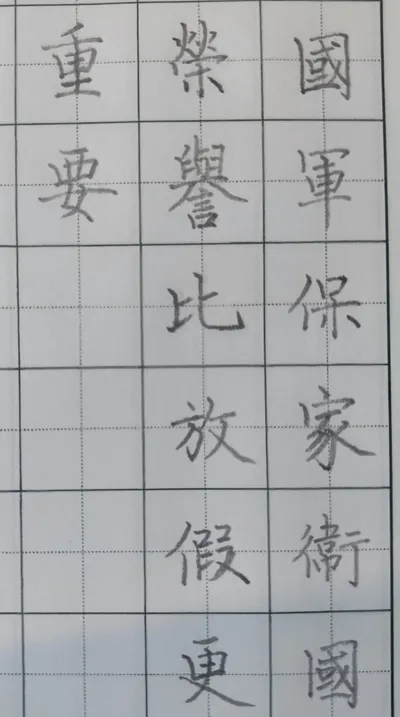 國軍保家衛國
榮譽比放假更
重要